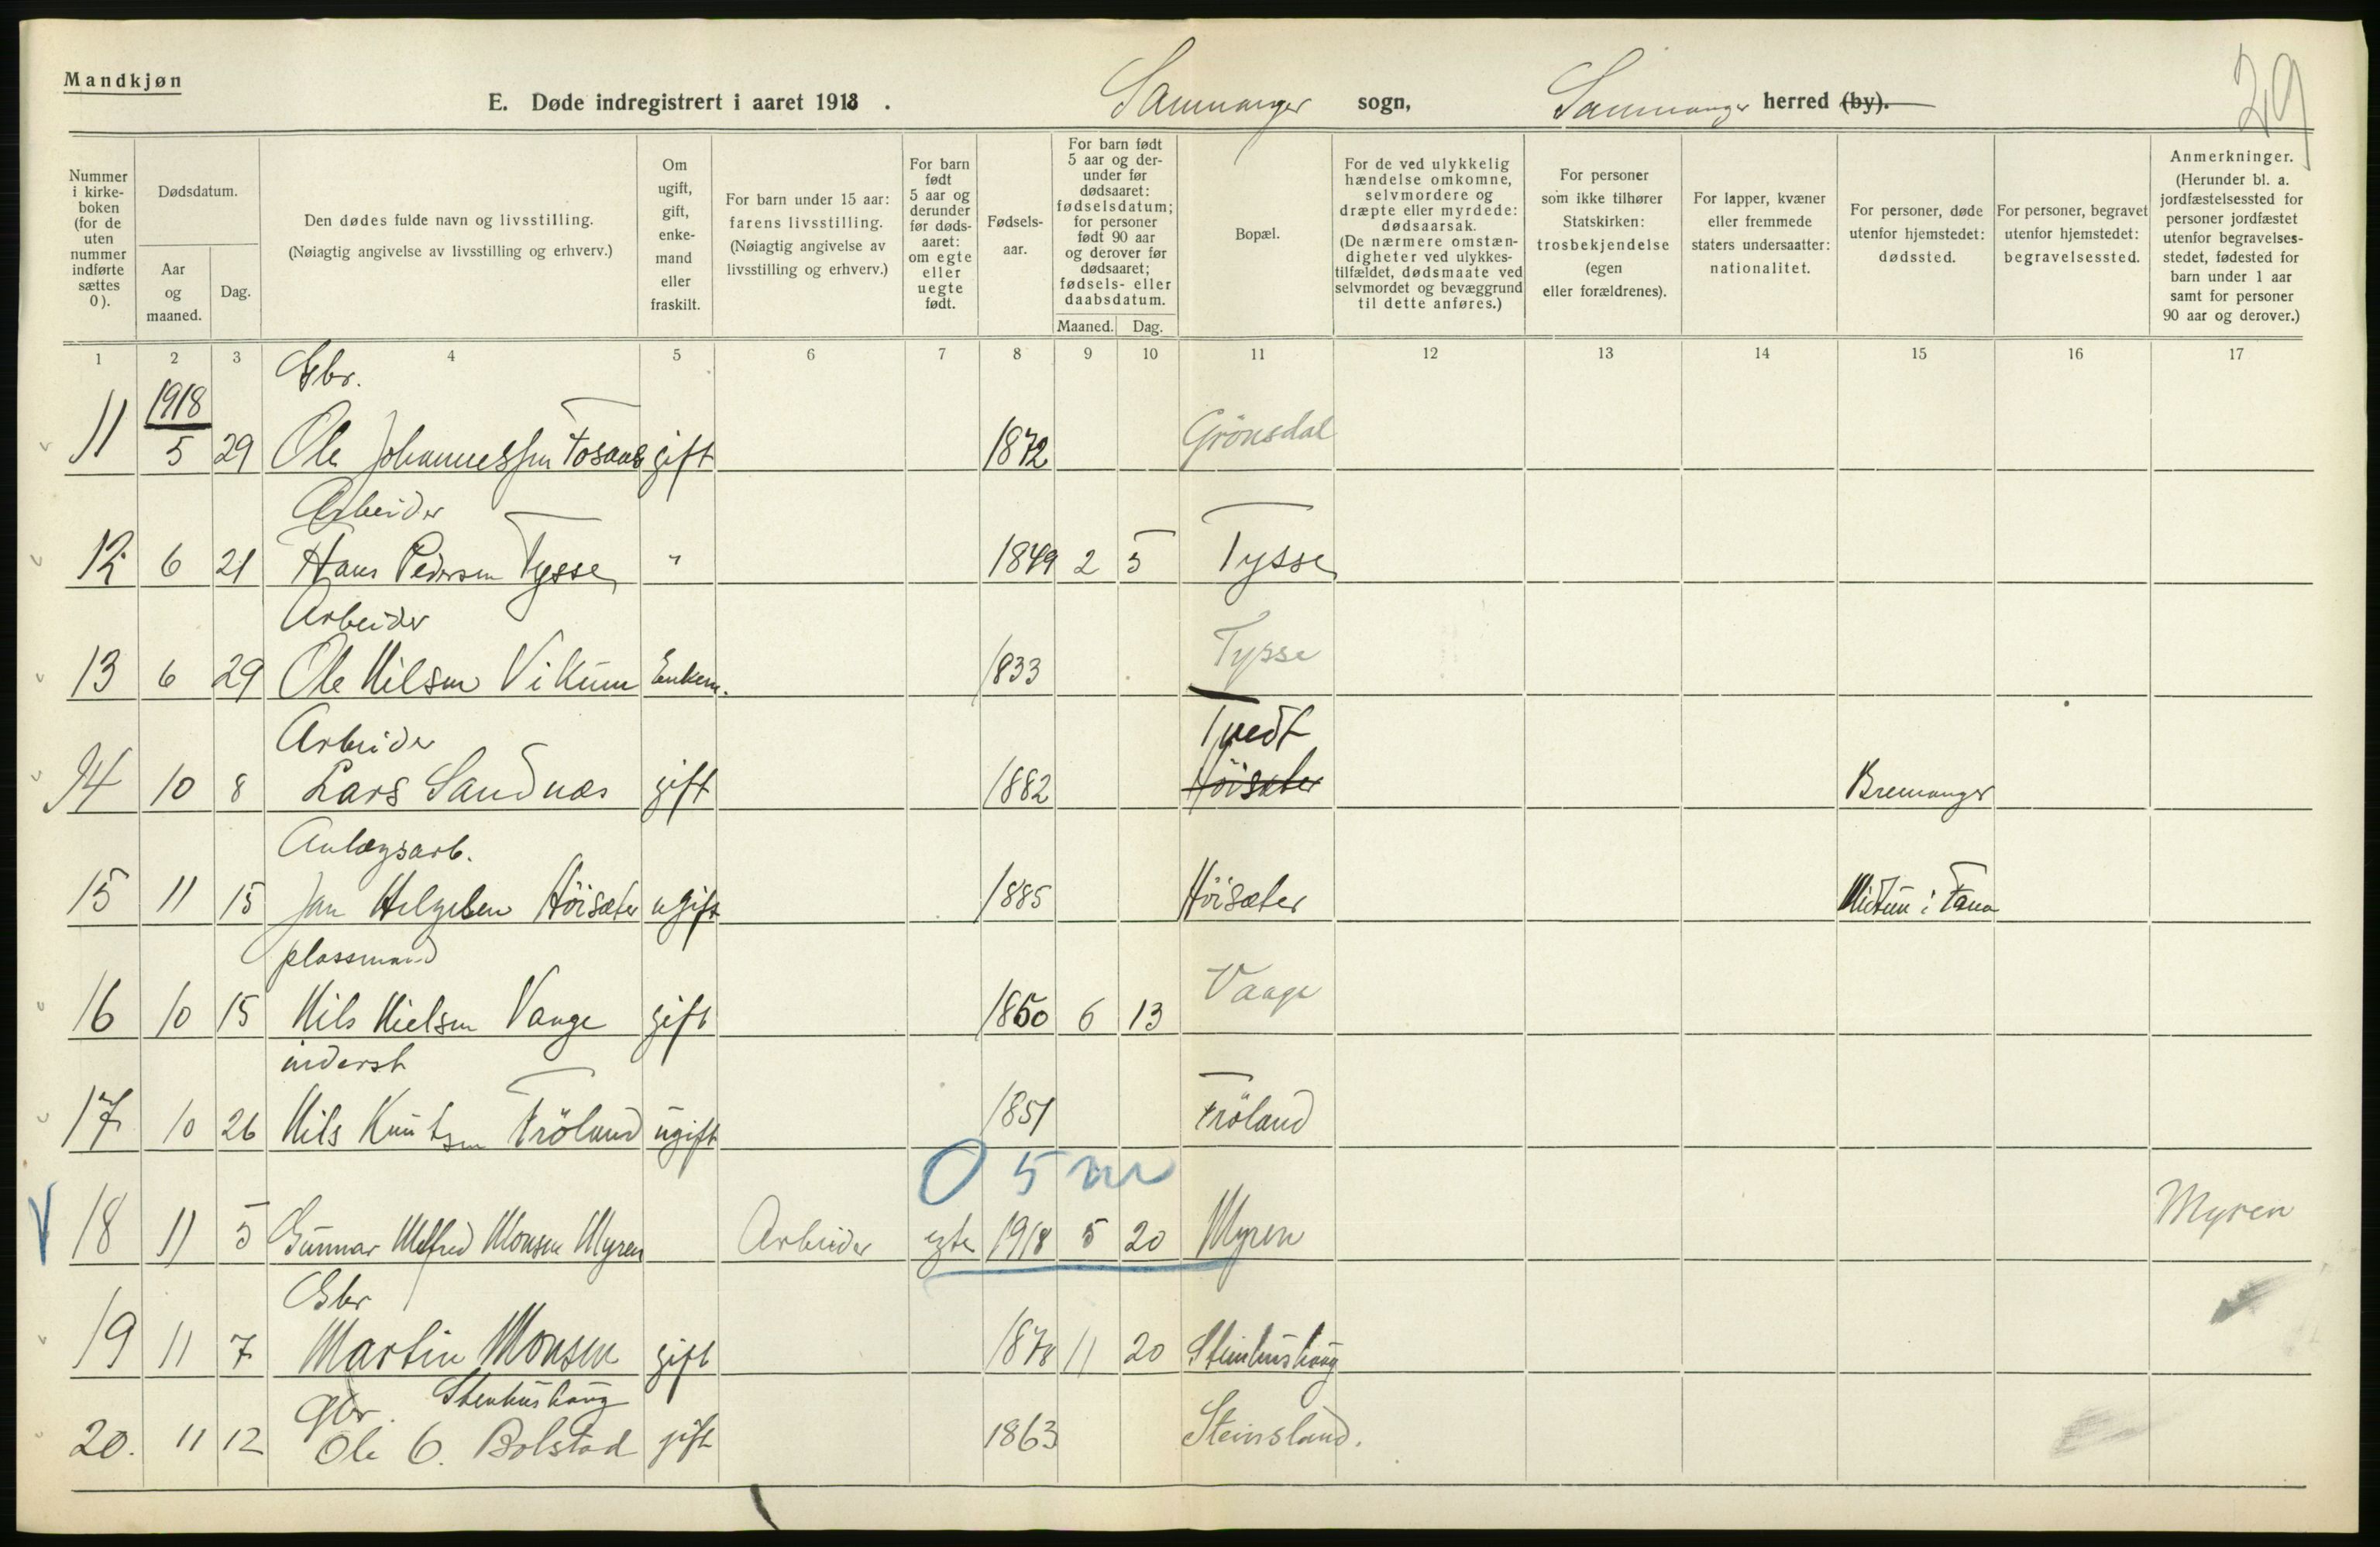 Mandkjøn
E. Døde indregistrert i aaret 1918.
Samnanger sogn, Samnanger herred (by).
29
Nummer i kirkeboken (for de uten nummer indførte sættes 0).
Dødsdatum.
Aar og maaned.
Dag.
Den dødes fulde navn og livsstilling.
(Nøiagtig angivelse av livsstilling og erhverv.)
Om ugift, gift, enkemand eller fraskilt.
For barn under 15 aar: farens livsstilling.
(Nøiagtig angivelse av livsstilling og erhverv.)
For barn født 5 aar og derunder før dødsaaret: om egte eller uegte født.
Fødselsaar.
For barn født 5 aar og derunder før dødsaaret: fødselsdatum; for personer født 90 aar og derover før dødsaaret; fødsels- eller daabsdatum.
Maaned. Dag.
Bopæl.
For de ved ulykkelig hændelse omkomne, selvmordere og dræpte eller myrdede: dødsaarsak.
(De nærmere omstændigheter ved ulykkestilfældet, dødsmaate ved selvmordet og bevæggrund til dette anføres.)
For personer som ikke tilhører Statskirken: trosbekjendelse (egen eller forældrenes).
For lapper, kvæner eller fremmede staters undersaatter: nationalitet.
For personer, døde utenfor hjemstedet: dødssted.
For personer, begravet utenfor hjemstedet: begravelsessted.
Anmerkninger.
(Herunder bl. a. jordfæstelsessted for personer jordfæstet utenfor begravelsesstedet, fødested for barn under 1 aar samt for personer 90 aar og derover.)
1 2 3 4 5 6 7 8 9 10 11 12 13 14 15 16 17
Gbr.
1918
11 5 29 Ole Johannessen Fosaas gift 1872 Grönsdal
Arbeider
12 6 21 Hans Pedersen Tysse " 1849 2 5 Tysse
Arbeider
13 6 29 Ole Nilsen Vikum Enkem. 1833 Tysse
Arbeider Tvedt
14 10 8 Lars Sandnæs gift 1882 Höisæter Bremanger
Anlægsarb.
15 11 15 Jan Helgesen Höisæter ugift 1885 Höisæter Midtun i Fana
plassmand
16 10 15 Nils Nielsen Vaage gift 1850 6 13 Vaage
inderst
17 10 26 Nils Knutsen Fröland ugift 1851 Fröland
0 5 m
V 18 11 5 Gunnar Alfred Monsen Myren Arbeider egte 1918 5 20 Myren Myren
Gbr
19 11 7 Martin Monsen gift 1878 11 20 Steinhushaug
Gbr. Stenhushaug
20. 11 12 Ole O. Bolstad gift 1863 Steinsland.